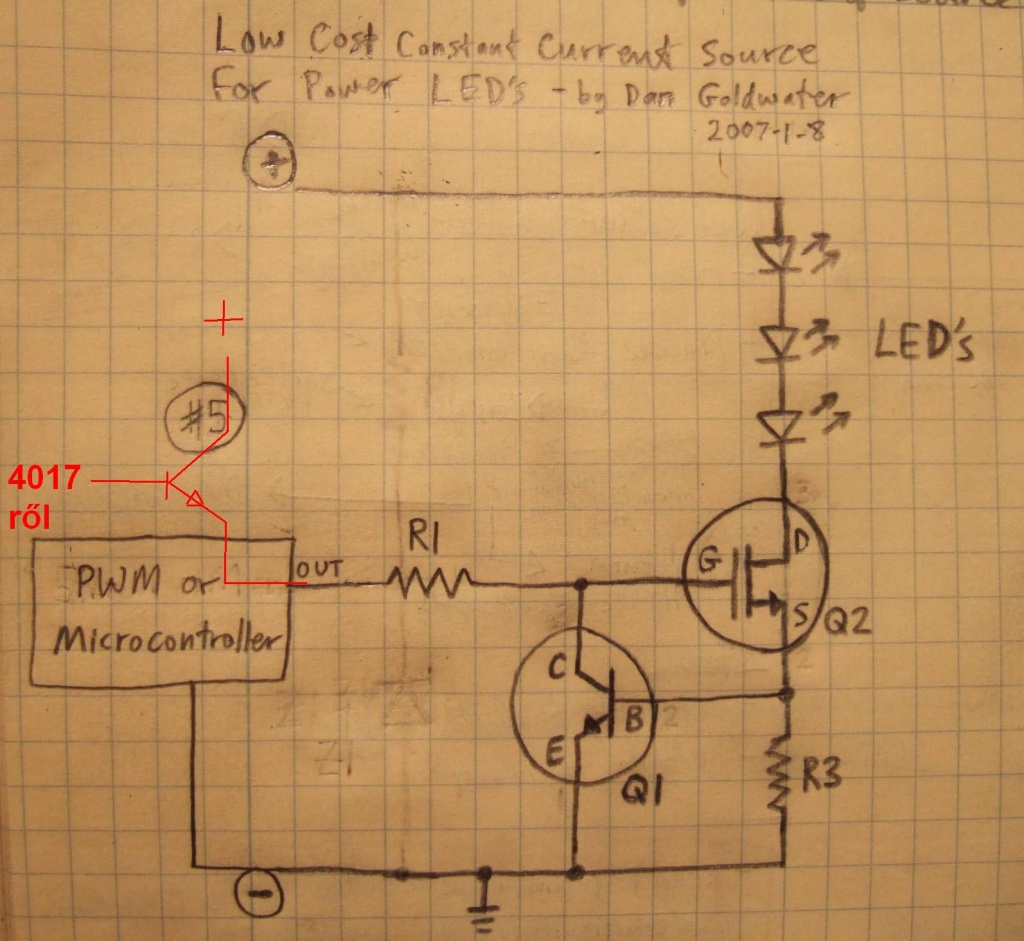 Low Cost Constant Current Source
For Power LED's - by Dan Goldwater
2007-1-8
+
+
#5
4017
ről
LED's
PWM or
Microcontroller
OUT
R1
G
D
S
Q2
C
B
E
Q1
R3
-